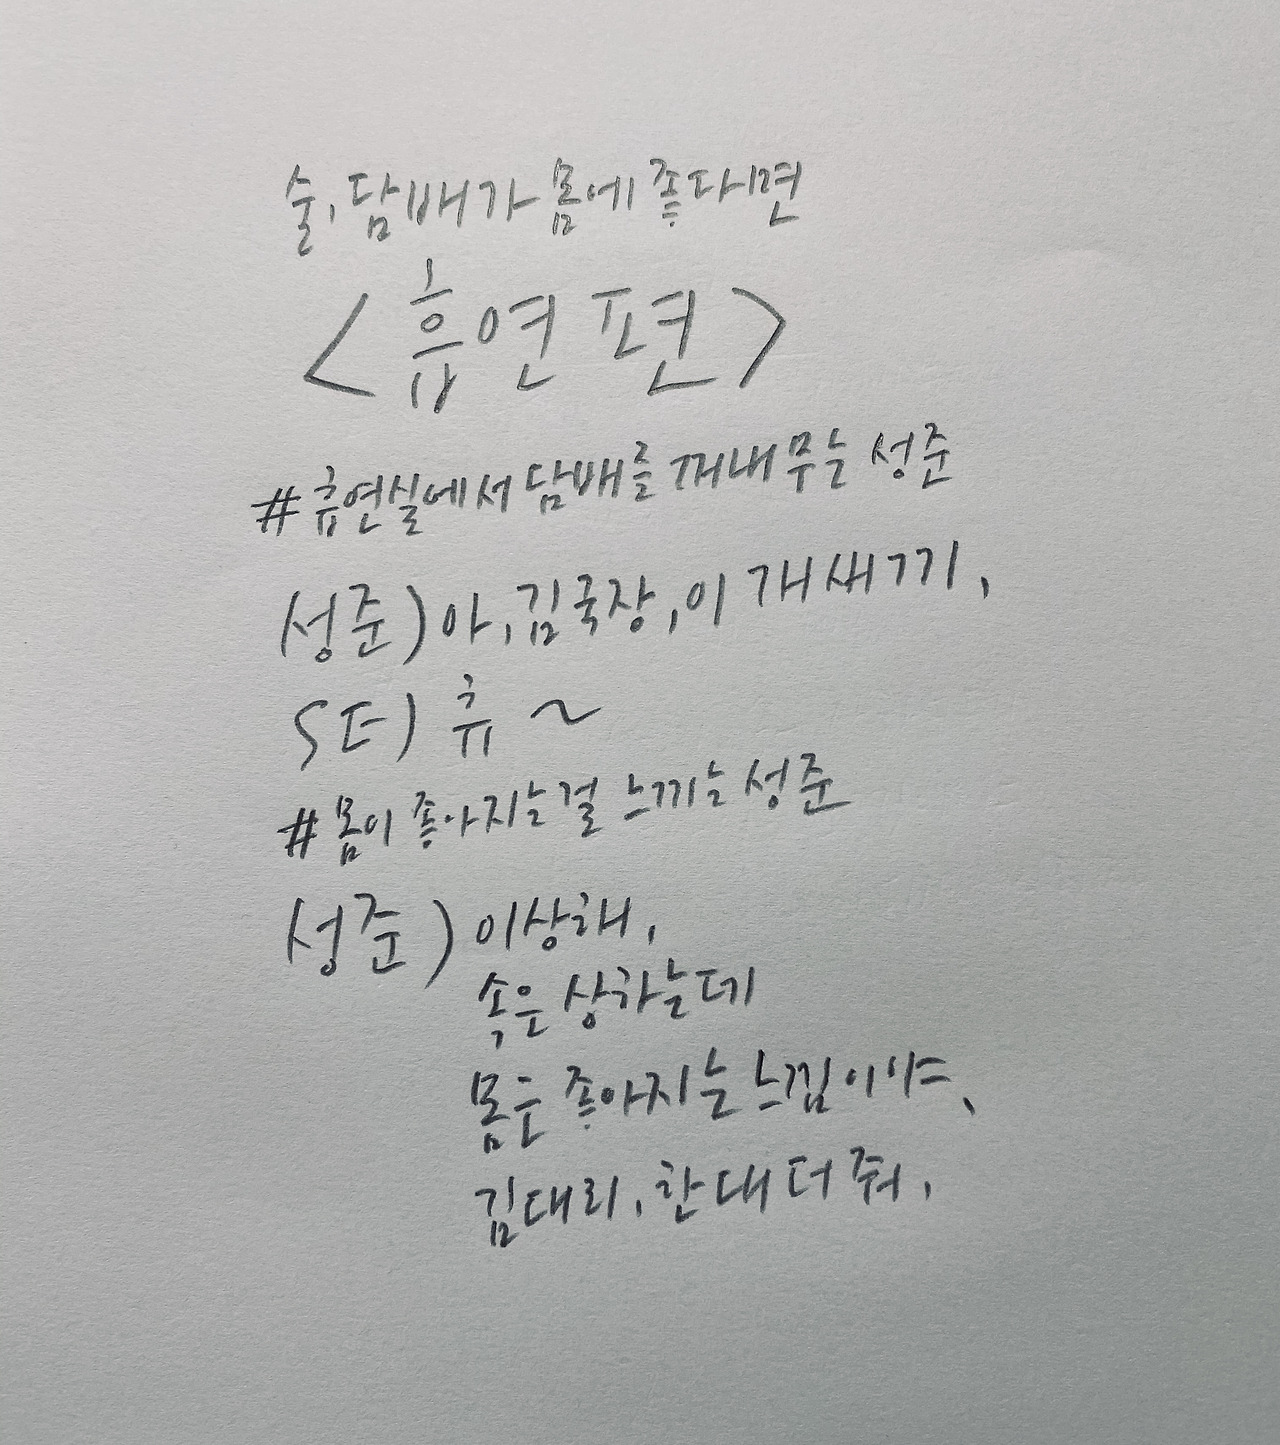 술, 담배가 몸에 좋다면
<흡연 편>
#흡연실에서 담배를 꺼내 무는 성준
성준) 아, 김국장, 이 개새끼,
SE) 휴 ~
#몸이 좋아지는걸 느끼는 성준
성준) 이상해,
속은 상하는데
몸은 좋아지는 느낌이야,
김대리, 한 대 더 줘,